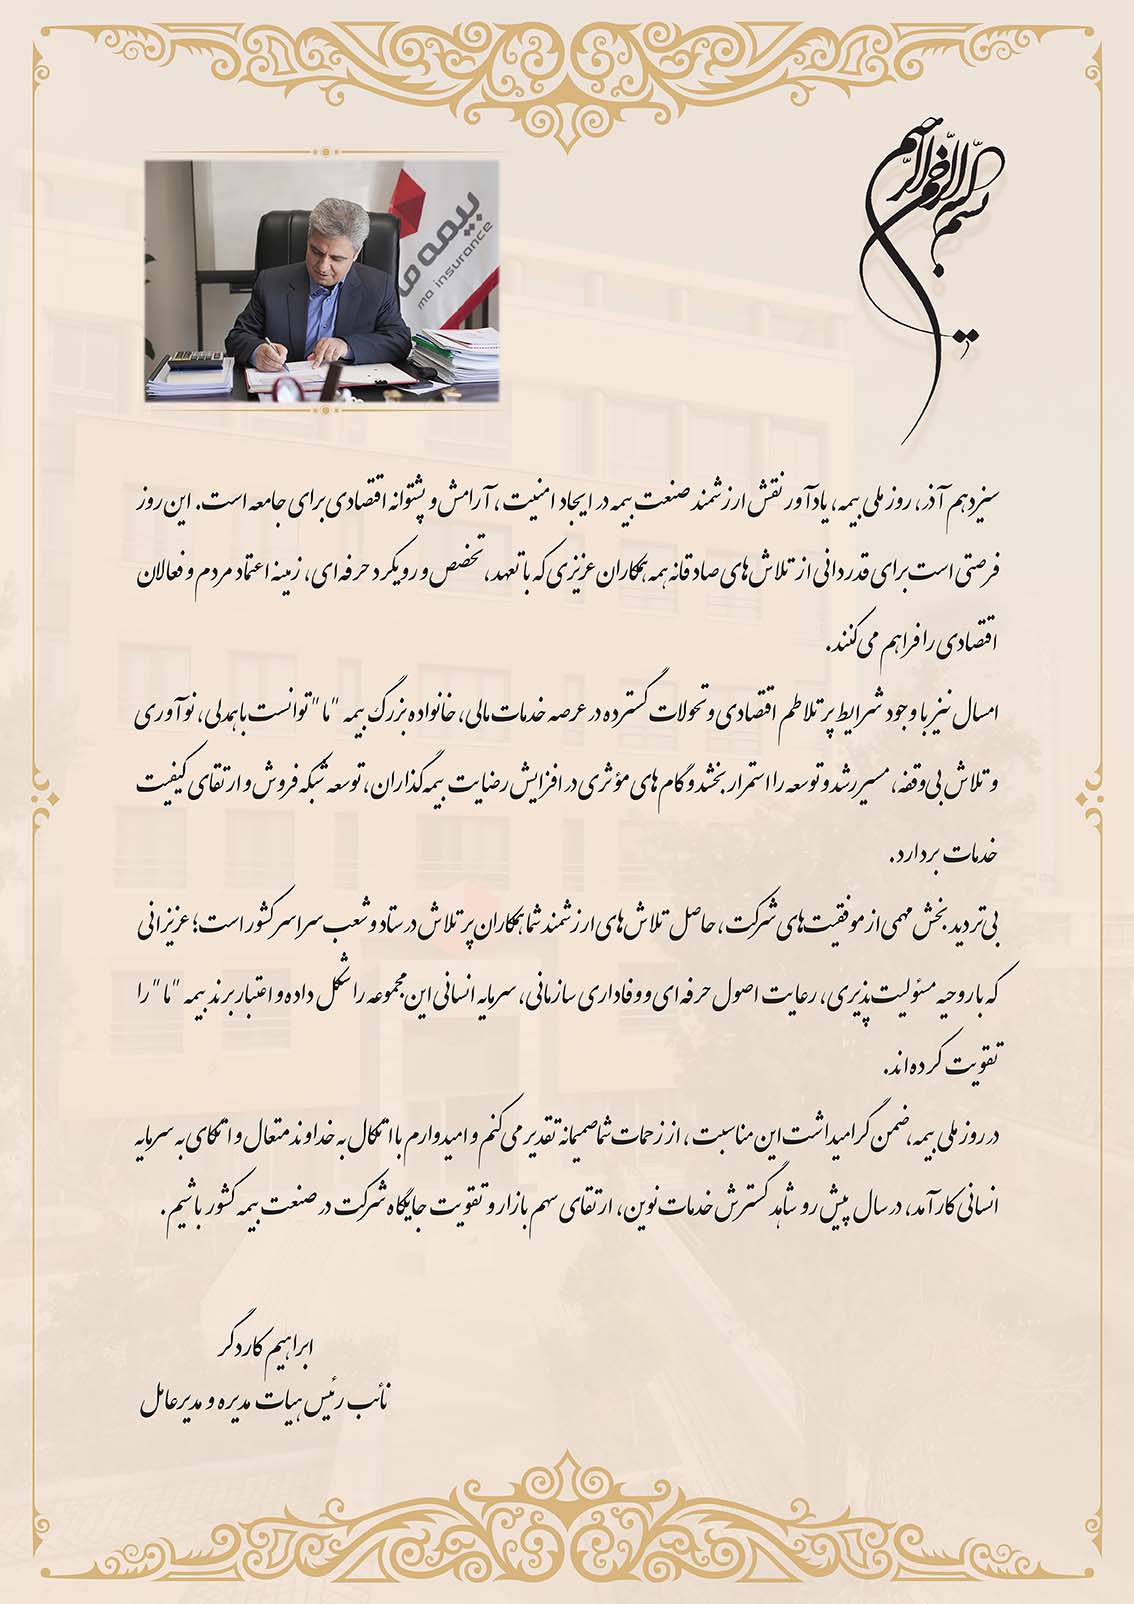 بسم الله الرحمن الرحیم
بیمه ما
ma insurance
سیزدهم آذر، روز ملی بیمه، یادآور نقش ارزشمند صنعت بیمه در ایجاد امنیت، آرامش و پشتوانه اقتصادی برای جامعه است. این روز
فرصتی است برای قدردانی از تلاش‌های صادقانه همه همکاران عزیزی که با تعهد، تخصص و رویکرد حرفه‌ای، زمینه اعتماد مردم و فعالان
اقتصادی را فراهم می‌کنند.
امسال نیز با وجود شرایط پر تلاطم اقتصادی و تحولات گسترده در عرصه خدمات مالی، خانواده بزرگ بیمه "ما" توانست با همدلی، نوآوری
و تلاش بی‌وقفه، مسیر رشد و توسعه را استمرار بخشد و گام های مؤثری در افزایش رضایت بیمه‌گذاران، توسعه شبکه فروش و ارتقای کیفیت
خدمات بردارد.
بی‌تردید بخش مهمی از موفقیت‌های شرکت، حاصل تلاش‌های ارزشمند شما همکاران پر تلاش در ستاد و شعب سراسر کشور است؛ عزیزانی
که با روحیه مسئولیت‌پذیری، رعایت اصول حرفه‌ای و وفاداری سازمانی، سرمایه انسانی این مجموعه را شکل داده و اعتبار برند بیمه "ما" را
تقویت کرده‌اند.
در روز ملی بیمه، ضمن گرامیداشت این مناسبت، از زحمات شما صمیمانه تقدیر می‌کنم و امیدوارم با اتکال به خداوند متعال و اتکای به سرمایه
انسانی کارآمد، در سال پیش رو شاهد گسترش خدمات نوین، ارتقای سهم بازار و تقویت جایگاه شرکت در صنعت بیمه کشور باشیم.
ابراهیم کاردگر
نائب رئیس هیات مدیره و مدیرعامل